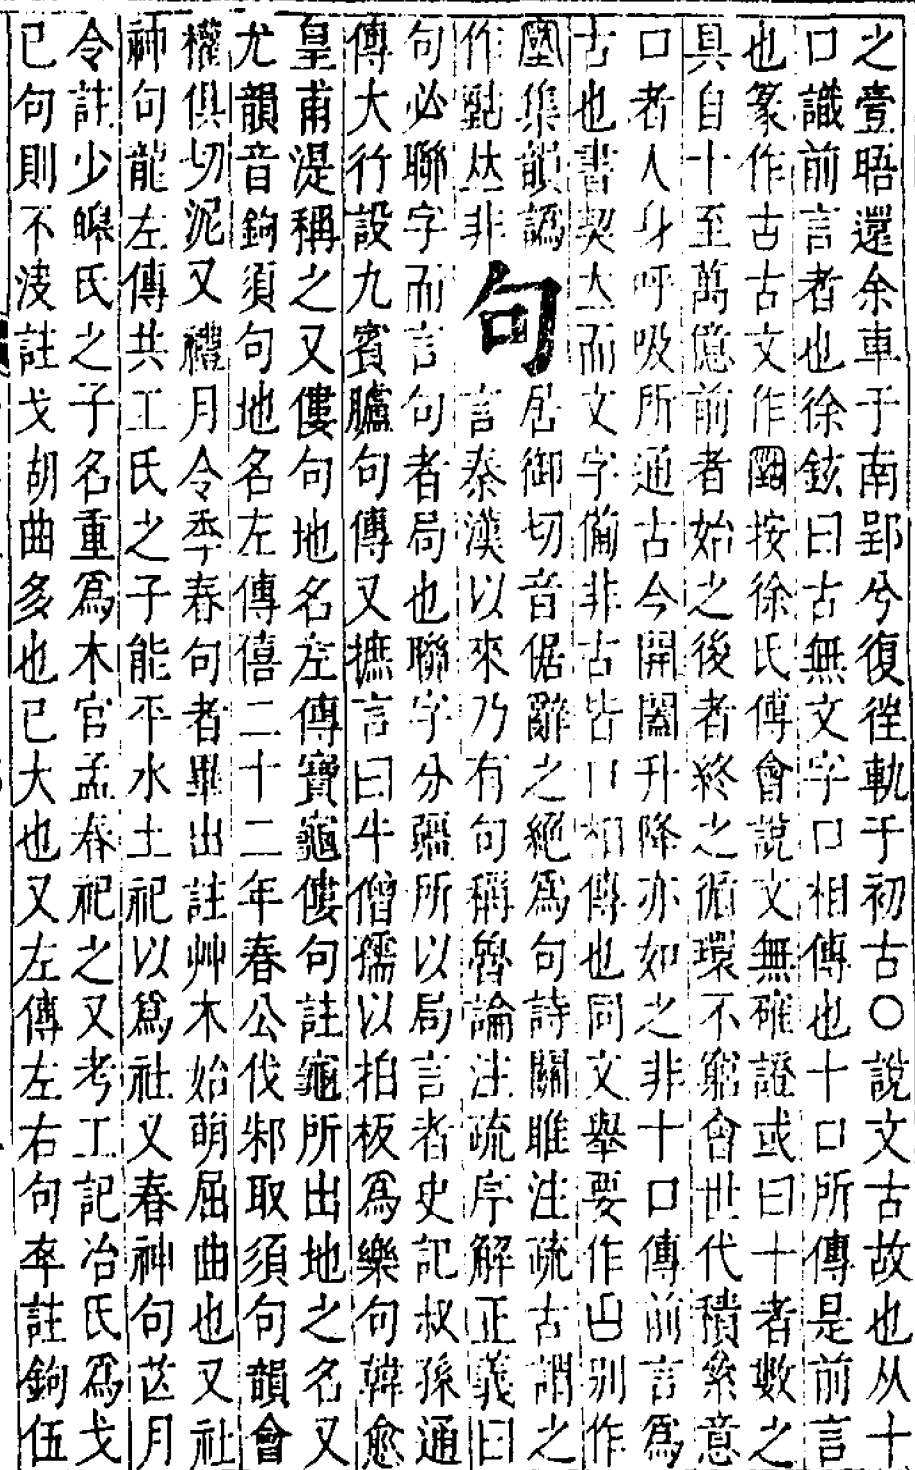 之壹晤還余車于南郢兮復徃軌于初古○說文古故也从十
口識前言者也徐鉉曰古無文字口相傳也十口所傳是前言
也篆作古古文作𡇣按徐氏傅會說文無確證或曰十者數之
具自十至萬億前者始之後者終之循環不窮會世代積絫意
口者人身呼吸所通古今開闔升降亦如之非十口傳前言爲
古也書契立而文字僃非古皆口相傳也同文舉要作𠙶別作
𡒍集韻譌
句
居御切音倨辭之絕爲句詩關雎注疏古謂之
作㸃𠀤非
言秦漢以來乃有句稱魯論注疏序解正義曰
句必聯字而言句者局也聯字分疆所以局言者史記叔孫通
傳大行設九賓臚句傳又摭言曰牛僧孺以拍板爲樂句韓愈
皇甫湜稱之又僂句地名左傳寶龜僂句註龜所出地之名又
尤韻音鉤須句地名左傳僖二十二年春公伐邾取須句韻會
權俱切泥又禮月令季春句者畢出註艸木始萌屈曲也又社
神句龍左傳共工氏之子能平水土祀以爲社又春神句芒月
令註少皥氏之子名重爲木官孟春祀之又考工記冶氏爲戈
已句則不決註戈胡曲多也已大也又左傳左右句卒註鉤伍